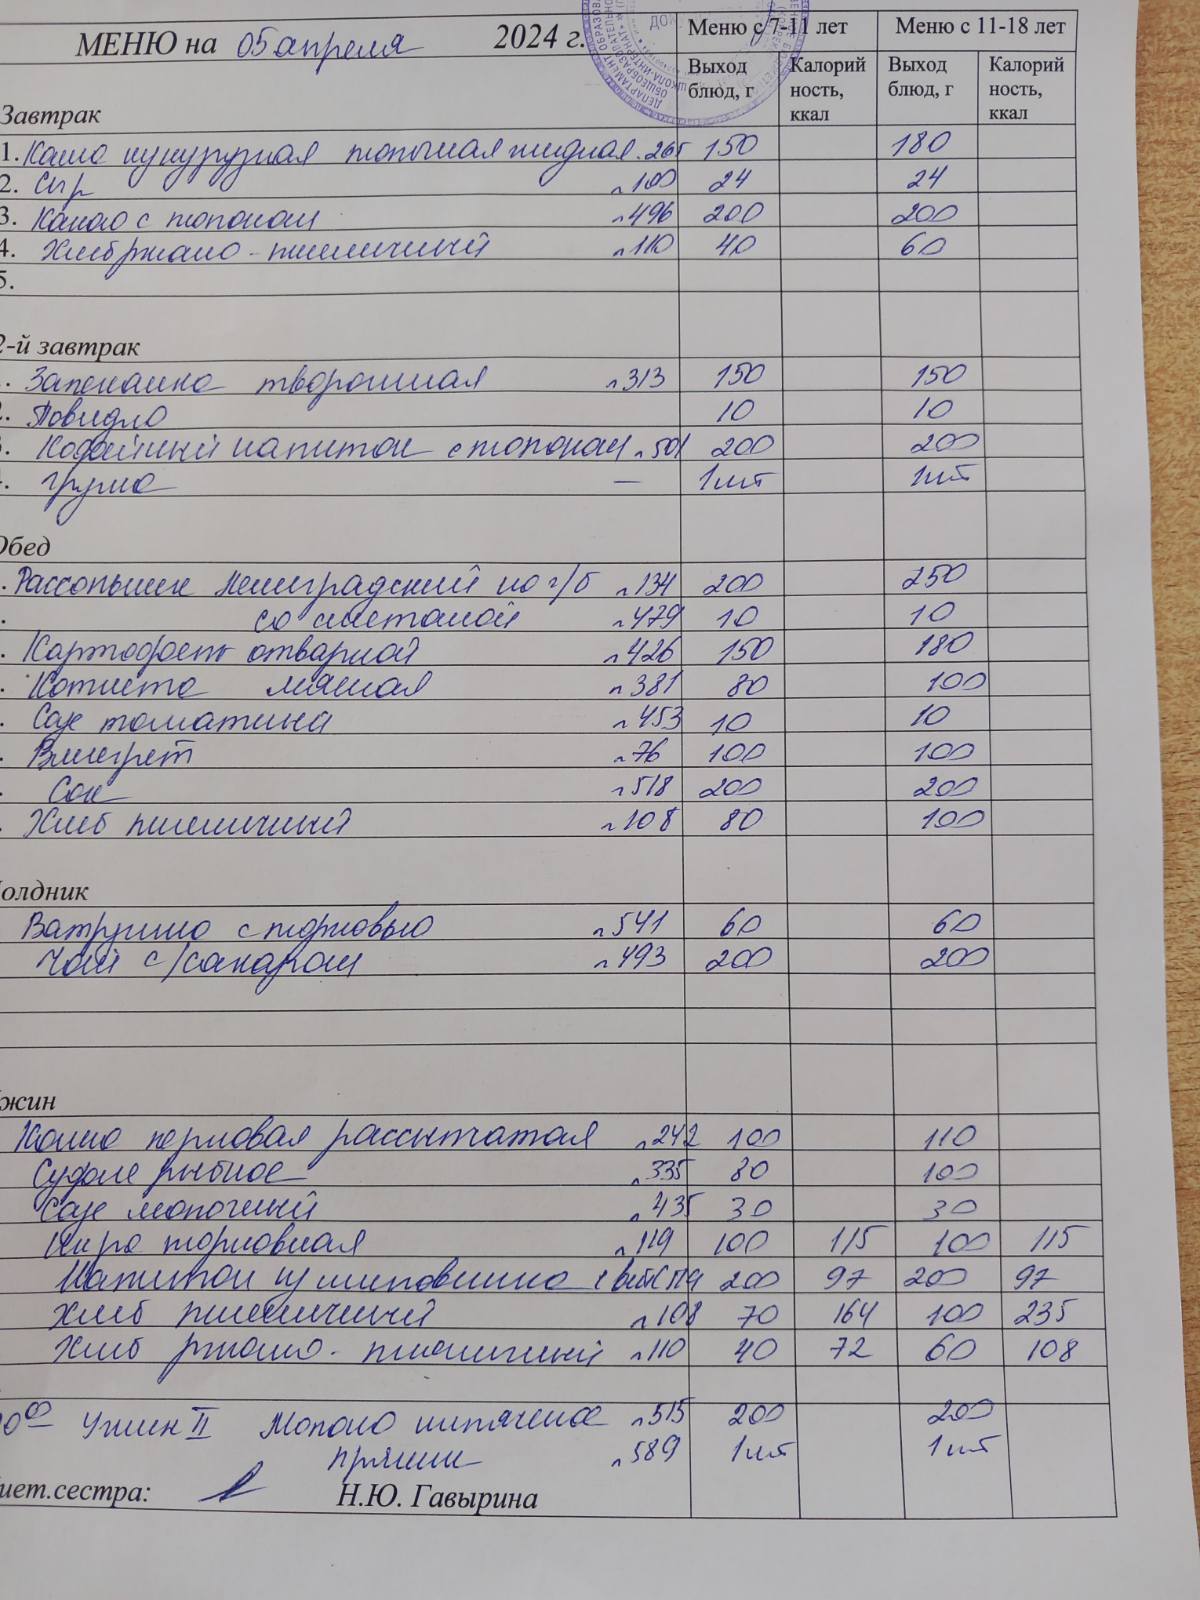 МЕНЮ на 05 апреля 2024 г. Меню с 7-11 лет Меню с 11-18 лет
Выход блюд, г Калорий ность, ккал Выход блюд, г Калорий ность, ккал
Завтрак
1. Каша кукурузная молочная жидкая. 265 150 180
2. Сыр л 100 24 24
3. Какао с молоком л 496 200 200
4. Хлеб ржано-пшеничный л 110 40 60
5.
2-й завтрак
Запеканка творожная л 313 150 150
Повидло 10 10
Кофейный напиток с молоком л 501 200 200
груша — 1шт 1шт
Обед
Рассольник Ленинградский на г/б л 134 200 250
со сметаной л 479 10 10
Картофель отварной л 426 150 180
Котлета мясная л 381 80 100
Соус томатный л 453 10 10
Винегрет л 76 100 100
Сок л 518 200 200
Хлеб пшеничный л 108 80 100
олдник
Ватрушка с морковью л 541 60 60
Чай с/сахаром л 493 200 200
жин
Каша перловая рассыпчатая л 242 100 110
Суфле рыбное л 335 80 100
Соус молочный л 435 30 30
Икра морковная л 119 100 115 100 115
Напиток из шиповника 200 97 200 97
Хлеб пшеничный л 108 70 164 100 235
Хлеб ржано-пшеничный л 110 40 72 60 108
Ужин II Молоко кипяченое л 515 200 200
пряник л 589 1шт 1шт
иет.сестра: Н.Ю. Гавырина